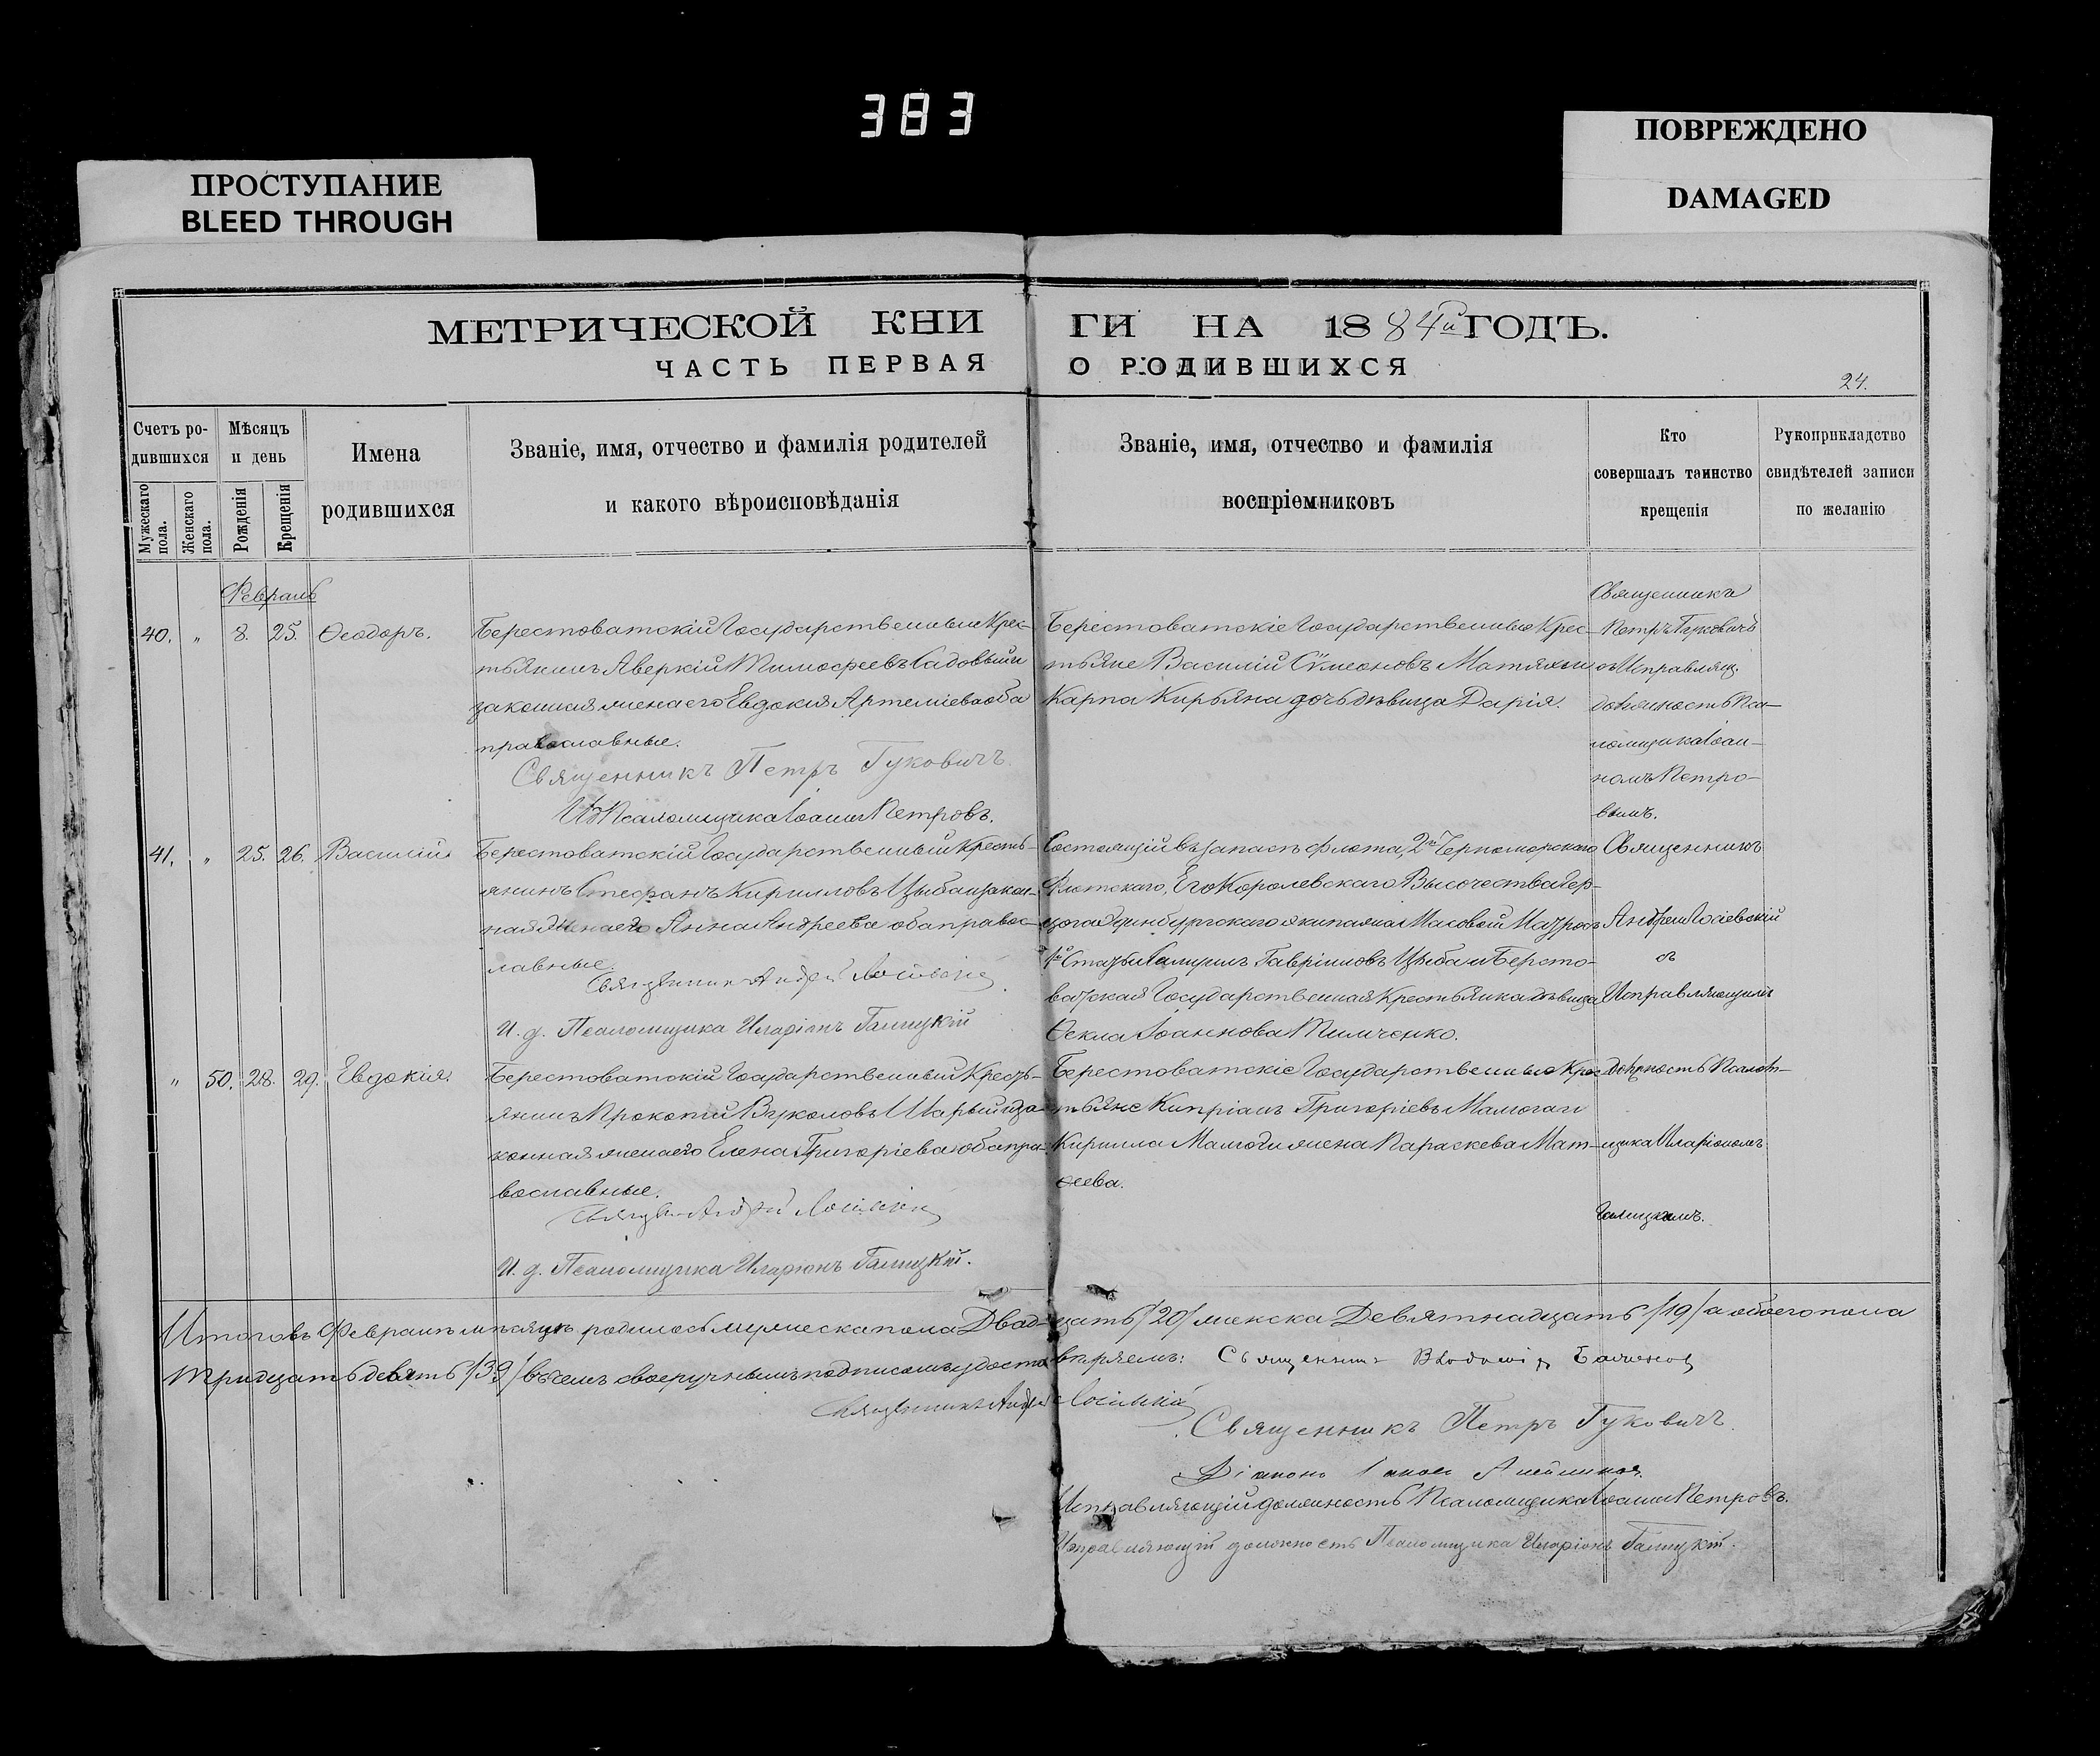 383
ПРОСТУПАНИЕ
BLEED THROUGH
ПОВРЕЖДЕНО
DAMAGED
МЕТРИЧЕСКОЙ КНИ
ГИ НА 1884й ГОДЪ.
ЧАСТЬ ПЕРВАЯ
О РОДИВШИХСЯ
24.
Счетъ ро-
дившихся
Мужескаго пола.
Женскаго пола.
Мѣсяцъ
и день
Рожденія
Крещенія
Имена
родившихся
Званіе, имя, отчество и фамилія родителей
и какого вѣроисповѣданія
Званіе, имя, отчество и фамилія
воспріемниковъ
Кто
совершалъ таинство
крещенія
Рукоприкладство
свидѣтелей записи
по желанію
Февраль
40. " 8. 25. Ѳеодоръ.
Берестоватскій Государственный Крес-
тьянинъ Аверкій Тимофеевъ Садовый и
законная жена его Евдокия Артеміева оба
православные.
Священникъ Петръ Гуковичъ.
Псаломщика Іоаннъ Петровъ.
Берестоватскіе Государственные Крес-
тьяне Василій Сѵмеоновъ Матяхи и
Карпа Кирьяна дочь дѣвица Дарія.
Священникъ
Петръ Гуковичъ
съ Исправляющ.
должность Пса-
ломщика Іоан-
номъ Петро-
вымъ.
41. " 25. 26. Василій
Берестоватскій Государственный Кресть-
янинъ Стефанъ Кирилловъ Цыба и закон-
ная жена его Анна Андреева оба правос-
лавные.
Священникъ Андрей Лосіевскій
И. д. Псаломщика Иларіонъ Галицкій
Состоящій въ запасѣ флота, 2го Черноморскаго
Флотскаго, Его Королевскаго Высочества Гер-
цога Эдинбургскаго экипажа Масовой Матросъ
1й Статьи Гавріиловъ Цыба и Бересто-
ватская Государственная Крестьянка дѣвица
Ѳекла Іоаннова Тимченко.
Священникъ
Андрей Лосіевскій
съ
Исправляющимъ
" 50. 28. 29. Евдокія.
Берестоватскій Государственный Кресть-
янинъ Прокопій Вуколовъ Шарый и за-
конная жена его Елена Григоріева оба пра-
вославные.
Священ. Андрей Лосіевскій
И. д. Псаломщика Иларіонъ Галицкій.
Берестоватскіе Государственные Крес-
тьяне Кипріанъ Григоріевъ и
Кирилла жена Параскева Мат-
ѳеева.
должность Псалом-
щика Иларіономъ
Галицкимъ.
Итого въ Февралѣ мѣсяцѣ родилось мужеска пола Двад-
цать /20/ женска Девятнадцать /19/ а обоего пола
тридцать девять /39/ въ чемъ своеручнымъ подписомъ удосто-
вѣряемъ: Священникъ
Священникъ Андрей Лосіевскій
Священникъ Петръ Гуковичъ
Діаконъ
Исправляющій должность Псаломщика Іоаннъ Петровъ.
Исправляющій должность Псаломщика Иларіонъ Галицкій.